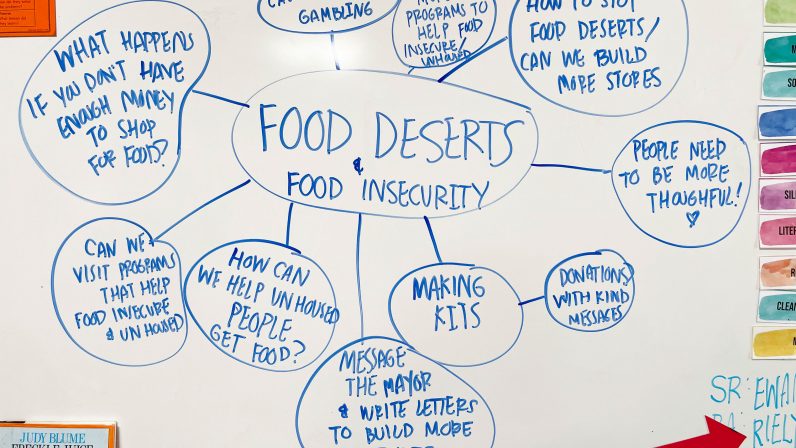 GAMBLING
PROGRAMS TO
HELP FOOD
INSECURE/
UNHOUSED
HOW TO STOP
FOOD DESERTS/
CAN WE BUILD
MORE STORES
WHAT HAPPENS
IF YOU DON'T HAVE
ENOUGH MONEY
TO SHOP
FOR FOOD?
FOOD DESERTS
&
FOOD INSECURITY
PEOPLE NEED
TO BE MORE
THOUGHTFUL!
CAN WE
VISIT PROGRAMS
THAT HELP
FOOD INSECURE
& UNHOUSED
HOW CAN
WE HELP UNHOUSED
PEOPLE
GET FOOD?
MAKING
KITS
DONATIONS
WITH KIND
MESSAGES
MESSAGE
THE MAYOR
& WRITE LETTERS
TO BUILD MORE
SR: EWAN
RIELY
JUDY BLUME
FRECKLE JUICE